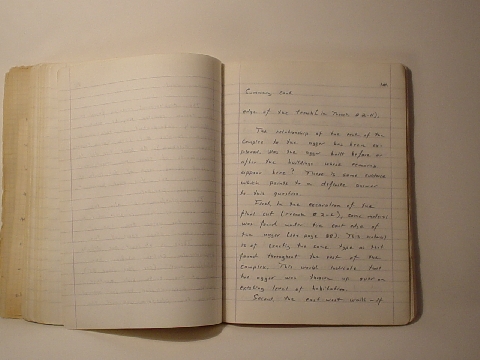 Summary cont.
edge of the trench (in Trench
The relationship of the rest of the
complex to the agger has been
Was the agger built before or
after the buildings whose remains
appear here? There is some evidence
which points to a definite answer
to this question.
First, in the excavation of the
cut (trench), some material
was found under the east edge of
the agger (see page). This material
is of exactly the same type as that
found throughout the rest of the
complex. This would indicate that
the agger was thrown up over an
existing level of habitation.
Second, the east-west walls of